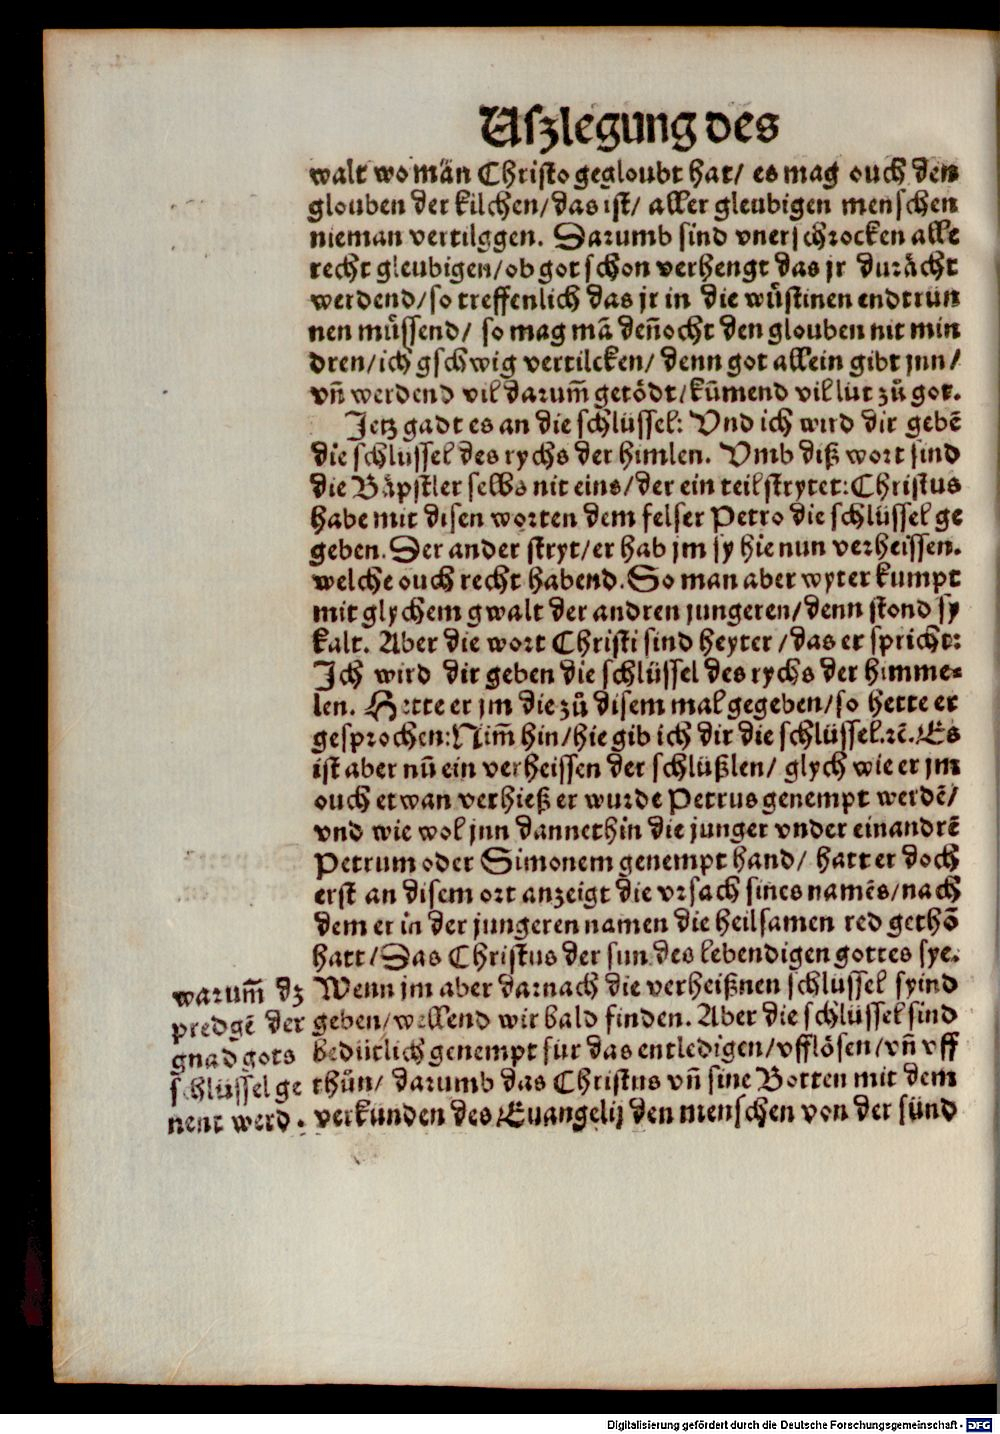 Uſzlegung des
walt wo män Chriſto gegloubt hat/ es mag ouch den
glouben der kilchen/das iſt/ aller gleubigen menſchen
nieman vertilggen. Darumb ſind vnerſchrocken alle
recht gleubigen/ob got ſchon verhengt das jr durächt
werdend/ſo treffenlich das jr in die wůſtinen endtrün
nen můſſend/ ſo mag mã deñocht den glouben nit min
dren/ich gſchwig vertilcken/ denn got allein gibt jnn/
vñ werdend vil darum̃ getödt/kũmend vil lüt zů got.
Jetz gadt es an die ſchlüſſel: Vnd ich wird dir gebẽ
die ſchlüſſel des rychs der himlen. Vmb diß wort ſind
die Bäpſtler ſelbs nit eins/der ein teil ſtrytet:Chriſtus
habe mit diſen worten dem felſer Petro die ſchlüſſel ge
geben.Der ander ſtryt/er hab jm ſy hie nun verheiſſen.
welche ouch recht habend.So man aber wyter kumpt
mit glychem gwalt der andren jungeren/denn ſtond ſy
kalt. Aber die wort Chriſti ſind heyter /das er ſpricht:
Ich wird dir geben die ſchlüſſel des rychs der himme⸗
len. Hette er jm die zů diſem mal gegeben/ſo hette er
geſprochen:Nim̃ hin/hie gib ich dir die ſchlüſſel.ꝛc̃.Es
iſt aber nũ ein verheiſſen der ſchlüßlen/ glych wie er jm
ouch etwan verhieß er wurde Petrus genempt werdẽ/
vnd wie wol jnn dannethin die junger vnder einandrẽ
Petrum oder Simonem genempt hand/ hatt er doch
erſt an diſem ort anzeigt die vrſach ſines namẽs/nach
dem er in der jungeren namen die heilſamen red gethõ
hatt/Das Chriſtus der ſun des lebendigen gottes ſye.
Wenn jm aber darnach die verheißnen ſchlüſſel ſyind
geben/wellend wir bald finden. Aber die ſchlüſſel ſind
bedütlich genempt für das entledigen/vfflöſen/vñ vff
thůn/ darumb das Chriſtus vñ ſine Botten mit dem
verkünden des Euangelij den menſchen von der ſünd
warum̃ dz
predgẽ der
gnad gots
ſchlüſſel ge
nent werd.
Digitalisierung gefördert durch die Deutsche Forschungsgemeinschaft - DFG